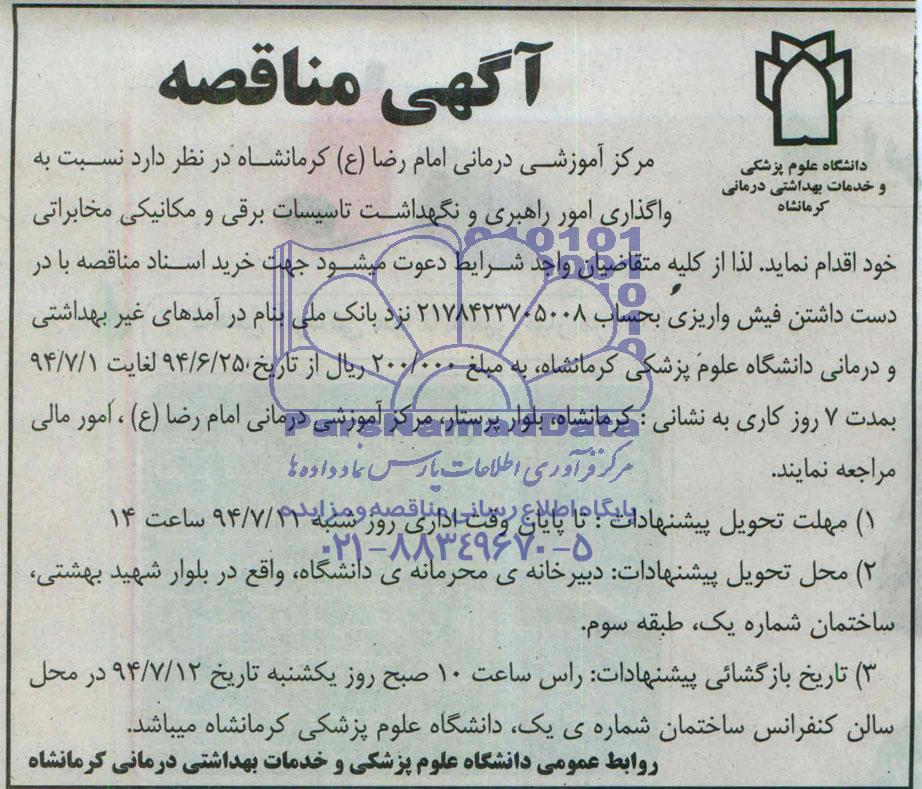 دانشگاه علوم پزشکی
و خدمات بهداشتی درمانی
کرمانشاه
آگهی مناقصه
مرکز آموزشی درمانی امام رضا (ع) کرمانشاه در نظر دارد نسبت به
واگذاری امور راهبری و نگهداشت تاسیسات برقی و مکانیکی مخابراتی
خود اقدام نماید. لذا از کلیه متقاضیان واجد شرایط دعوت میشود جهت خرید اسناد مناقصه با در
دست داشتن فیش واریزی بحساب ۲۱۷۸۴۲۳۷۰۵۰۰۸ نزد بانک ملی بنام در آمدهای غیر بهداشتی
و درمانی دانشگاه علوم پزشکی کرمانشاه، به مبلغ ۲۰۰/۰۰۰ ریال از تاریخ ۹۴/۶/۲۵ لغایت ۹۴/۷/۱
بمدت ۷ روز کاری به نشانی : کرمانشاه، بلوار پرستار، مرکز آموزشی درمانی امام رضا (ع) ، امور مالی
مراجعه نمایند.
۱) مهلت تحویل پیشنهادات : تا پایان وقت اداری روز شنبه ۹۴/۷/۱۱ ساعت ۱۴
۲) محل تحویل پیشنهادات: دبیرخانه ی محرمانه ی دانشگاه، واقع در بلوار شهید بهشتی،
ساختمان شماره یک، طبقه سوم.
۳) تاریخ بازگشائی پیشنهادات: راس ساعت ۱۰ صبح روز یکشنبه تاریخ ۹۴/۷/۱۲ در محل
سالن کنفرانس ساختمان شماره ی یک، دانشگاه علوم پزشکی کرمانشاه میباشد.
روابط عمومی دانشگاه علوم پزشکی و خدمات بهداشتی درمانی کرمانشاه
ParsNamadData
مرکز فرآوری اطلاعات پارس نماد داده ها
پایگاه اطلاع رسانی مناقصه و مزایده
۰۲۱-۸۸۳۴۹۶۷۰-۵